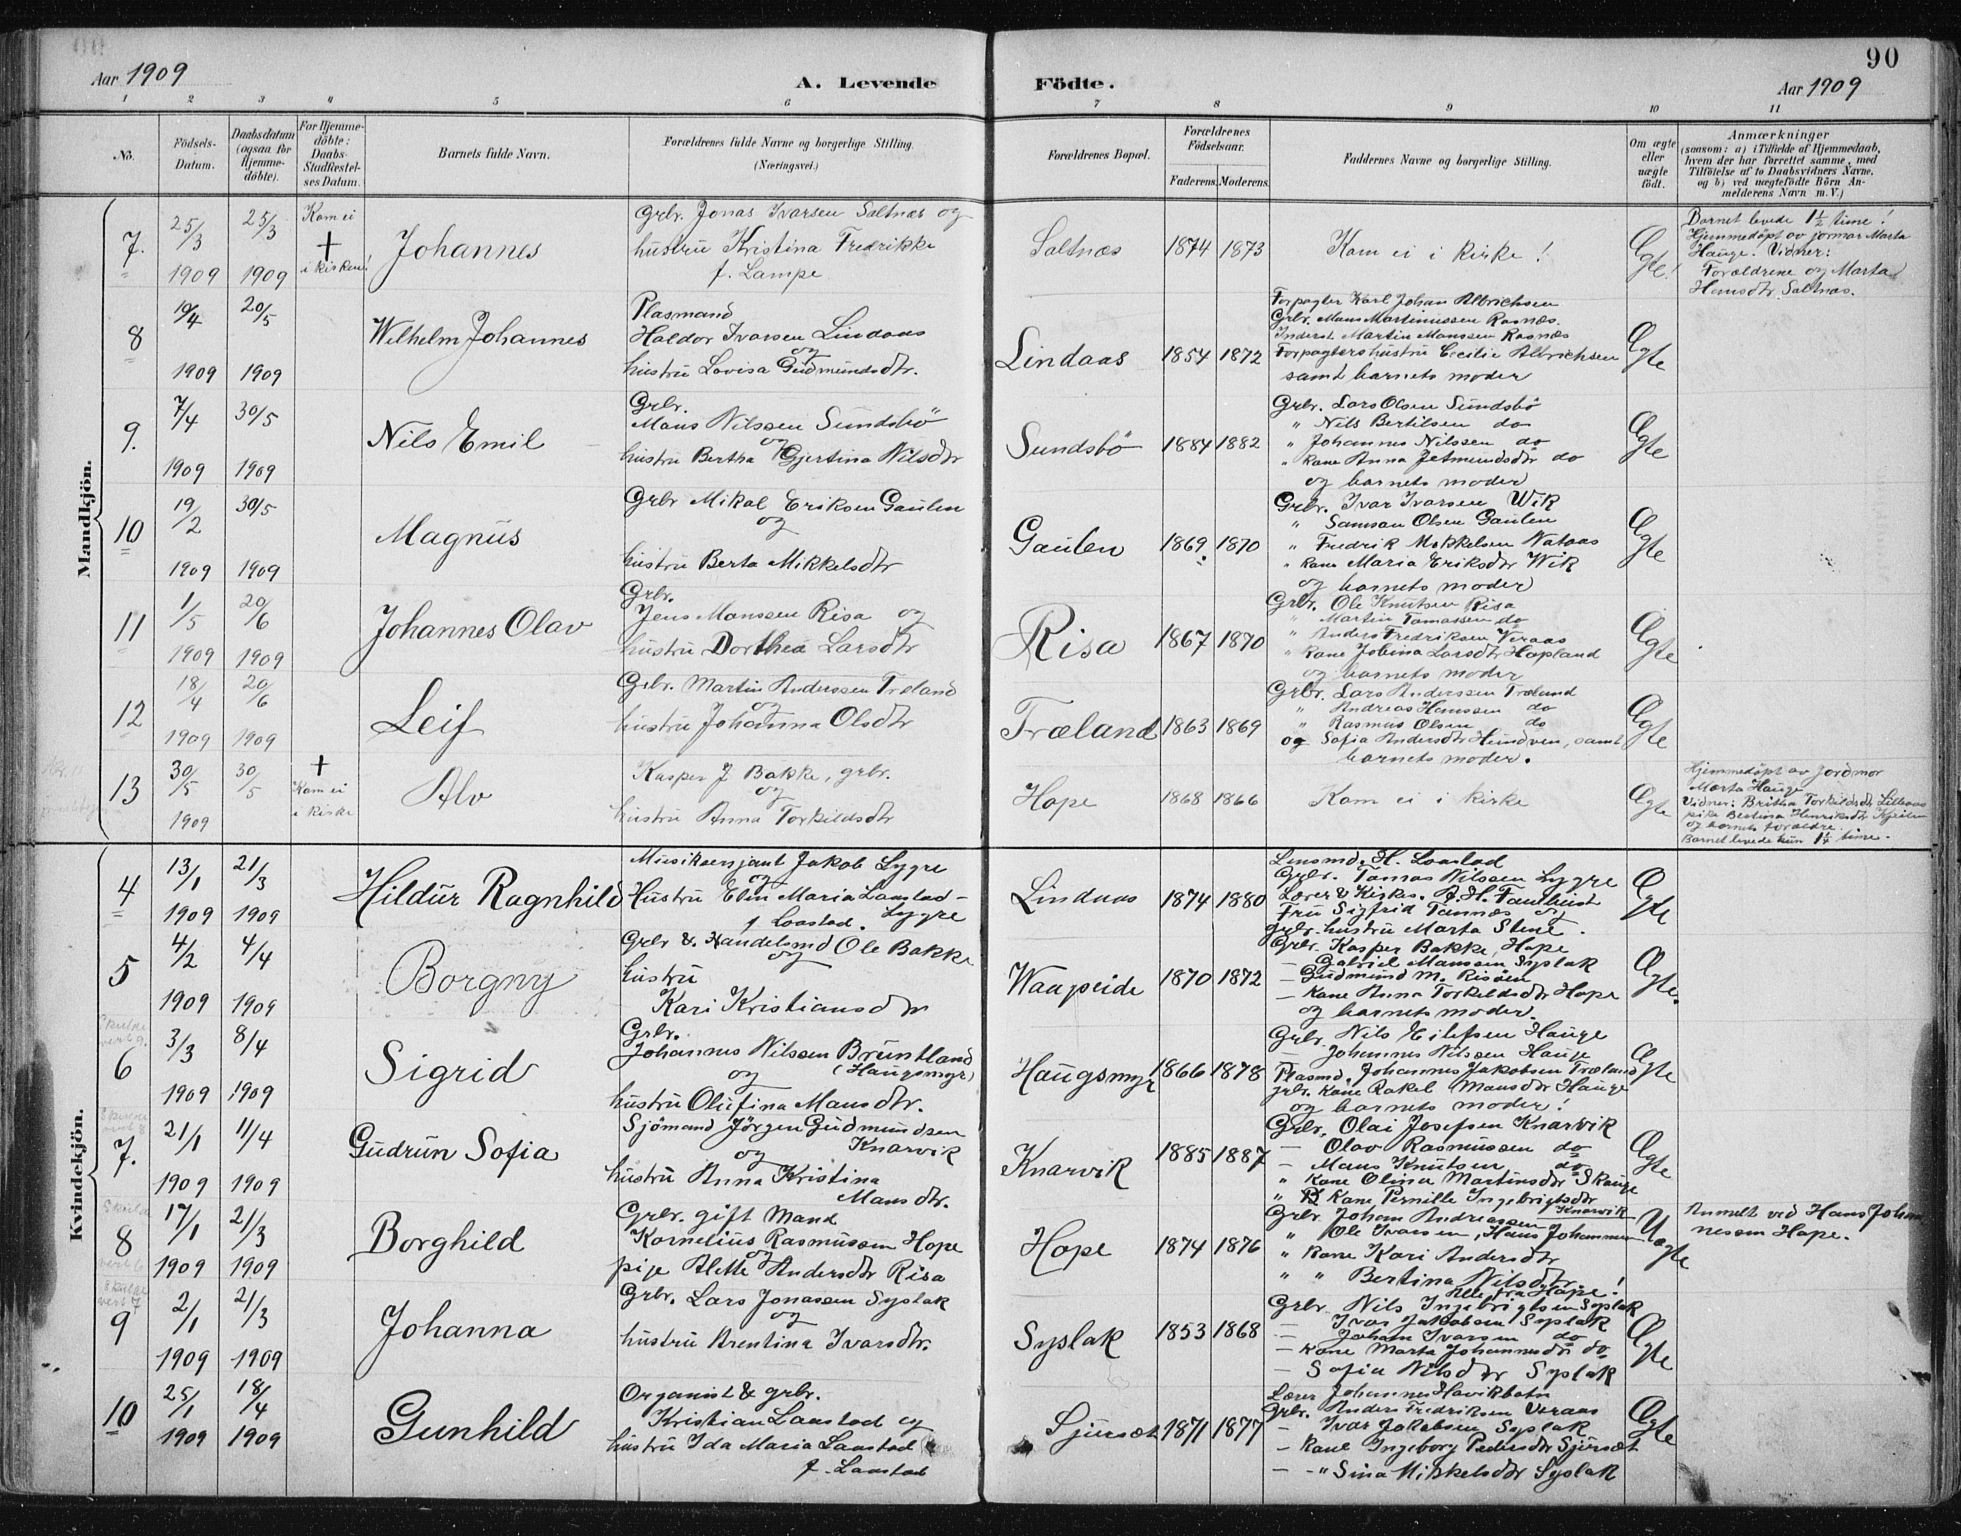 90
Aar 1909
A. Levende
Födte.
Aar 1909
1 2 3 4 5 6 7 8 9 10 11
No.
Födsels-
Datum.
Daabsdatum
(ogsaa for
Hjemme-
döbte).
For Hjemme-
döbte:
Daabs-
Stadfestel-
ses Datum.
Barnets fulde Navn.
Forældrenes fulde Navne og borgerlige Stilling.
(Næringsvei.)
Forældrenes Bopæl.
Forældrenes
Födselsaar.
Faderens. Moderens.
Faddernes Navne og borgerlige Stilling.
Om ægte
eller
uægte
födt.
Anmærkninger
(saasom: a) i Tilfælde af Hjemmedaab,
hvem der har forrettet samme, med
Tilföielse af to Daabsvidners Navne,
og b) ved uægtefödte Börn An-
melderens Navn m. V.)
Mandkjön.
7.
25/3
1909
25/3
1909
Kom ei
+
i kirken!
Johannes
Grbr. Jonas Ivarsen Saltnæs og
hustru Kristina Fredrikke
f. Lampe
Saltnæs
1874
1873
Kom ei i kirke!
Ægte!
Barnet levede 1½ time!
Hjemmedöpt av jormor Marta
Hauge. Vidner:
Forældrene og Marta
Hansdtr. Saltnæs.
8
19/4
1909
20/5
1909
Wilhelm Johannes
Plasmand
Haldor Ivarsen Lindaas
og
hustru Lovisa Gudmundsdtr.
Lindaas
1854
1872
Forpagter Karl Johan Albrichsen
Grbr. Mans Martinussen Rosnæs.
Inderst. Martin Manssen Rosnæs
Forpagtershustru Cecilie Albrichsen
samt barnets moder
Ægte
9.
7/4
1909
30/5
1909
Nils Emil
Grbr.
Mans Nilssen Sundsbö
og
hustru Bertha Gjertina Nilsdtr
Sundsbö
1884
1882
Grbr. Lars Olsen Sundsbö
" Nils Bertilsen do
" Johannes Nilssen do
" kone Anna Jetmundsdtr do
og barnets moder
Ægte
10
19/2
1909
30/5
1909
Magnus
Grbr Mikal Eriksen Gaulen
og
hustru Berta Mikkelsdtr
Gaulen
1869.
1870
Grbr. Ivar Ivarsen Wik
" Samson Olsen Gaulen
" Fredrik Mikkelsen Nataas
" kone Maria Eriksdtr Wik
og barnets moder
Ægte
11
1/5
1909
20/6
1909
Johannes Olav
Grbr.
Jens Monssen Risa og
hustru Dorthea Larsdtr
Risa
1867
1870
Grbr. Ole Knutsen Risa
" Martin Tomassen do
" Anders Fredriksen Veraas
" kone Jobina Larsdtr Hopland
og barnets moder
Ægte
12
18/4
1909
20/6
1909
Leif
Grbr. Martin Anderssen Træland
og
hustru Johanna Olsdtr
Træland
1863
1869
Grbr. Lars Anderssen Træland
" Andreas Hanssen do
" Rasmus Olsen do
og Sofia Andersdtr Hundven, samt
barnets moder.
Ægte
13
30/5
1909
30/5
+
Kom ei
i kirke
Alv
Kasper J Bakke, grbr.
og
hustru Anna Torkildsdtr
Hope
1868
1866
Kom ei i kirke
Ægte
Hjemmedöpt av Jordmor
Marta Hauge
Vidner: Britha Torkildsdtr Lilleaas
pike Bertina Henriksdtr
og barnets forældre.
Barnet levede kun 1¼ time.
Kvindekjön.
4
13/1
1909
21/3
1909
Hildur Ragnhild
Musiksersjant Jakob Lygre
og
Hustru Elen Maria Laastad-
Lygre
f Laastad.
Lindaas
1874
1880
Lensmd. H. Laastad
Grbr. Tomas Nilssen Lygre
Lærer & Kirkes. A. H. Tamhust
Fru Sigfrid Tannæs og
grbr. hustru Marta Stene.
Ægte
5
4/2
1909
4/4
1909
Borgny
Grbr &. Handelsmd Ole Bakke
og
hustru
Kari Kristiansdtr
Waagseide
1870
1872
Grbr. Kasper Bakke, Hope
— Gabriel Manssen Syslak
— Gudmund M. Risöen
— Kone Anna Torkildsdtr Hope
og barnets moder.
Ægte.
6
3/3
1909
8/4
1909
Sigrid
Grbr.
Johannes Nilssen Bruntland
(Haugsmyr)
og
hustru Olufina Mansdtr.
Haugsmyr
1866
1878
Grbr. Nils Eilefsen Hauge
— Johannes Nilssen Hauge
Plasmd. Johannes Jakobsen Træland
grbr. kone Rakel Mansdtr Hauge
og barnets moder!
Ægte
7.
21/1
1909
11/4
1909
Gudrun Sofia
Sjömand Jörgen Gudmundsen
Knarvik
og
hustru Anna Kristina
Mansdtr.
Knarvik
1885
1887
Grbr. Olai Josefsen Knarvik
— Olav Rasmussen do
— Mans Knutsen do
" Kone Olina Martinsdtr Skauge
" Kone Pernille Ingebrigtsdtr
Knarvik
Ægte
8
17/1
1909
21/3
1909
Borghild
Grbr. gift Mand
Kornelius Rasmussen Hope
og
pige Alette Andersdtr Risa
Hope
1874
1876
Grbr. Johan Andreassen
" Ole Ivarsen, Hans Johannesen
" kone Kari Andersdtr
" " Bertina Nilsdtr.
Alle fra Hope!
Uægte
Anmelt ved Hans Johan
nessen Hope.
9
2/1
1909
21/3
1909
Johanna
Grbr. Lars Jonassen Syslak
og
hustru Arentina Ivarsdtr.
Syslak
1853
1868
Grbr. Nils Ingebrigtsen Syslak
— Ivar Jakobsen Syslak
— Johan Ivarsen do
— Kone Marta Johannesdtr do
— Sofia Nilsdtr Syslak
Ægte
10
25/1
1909
18/4
1909
Gunhild
Organist & grbr.
Kristian Laastad og
hustru Ida Maria Laastad
f. Laastad
Sjursæt
1871
1877
Lærer Johannes Havikbotn
Grbr. Anders Fredriksen Veraas
— Ivar Jakobsen Syslak
— Kone Ingeborg Pedersdtr Sjursæt
— " Sina Mikkelsdtr Syslak
Ægte